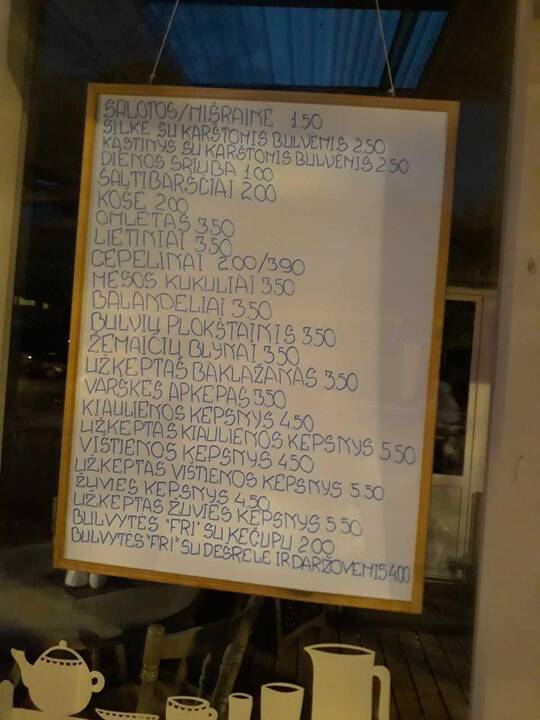 SALOTOS/MIŠRAINĖ 1.50
SILKĖ SU KARŠTOMIS BULVĖMIS 2.50
KASTINYS SU KARŠTOMIS BULVĖMIS 2.50
DIENOS SRIUBA 1.00
ŠALTIBARŠČIAI 2.00
KOŠĖ 2.00
OMLETAS 3.50
LIETINIAI 3.50
CEPELINAI 2.00/3.90
MĖSOS KUKULIAI 3.50
BALANDĖLIAI 3.50
BULVIŲ PLOKŠTAINIS 3.50
ŽEMAIČIŲ BLYNAI 3.50
UŽKEPTAS BAKLAŽANAS 3.50
VARŠKĖS APKEPAS 3.50
KIAULIENOS KEPSNYS 4.50
UŽKEPTAS KIAULIENOS KEPSNYS 5.50
VIŠTIENOS KEPSNYS 4.50
UŽKEPTAS VIŠTIENOS KEPSNYS 5.50
ŽUVIES KEPSNYS 4.50
UŽKEPTAS ŽUVIES KEPSNYS 5.50
BULVYTĖS "FRI" SU KEČUPU 2.00
BULVYTĖS "FRI" SU DEŠRELE IR DARŽOVĖMIS 4.00